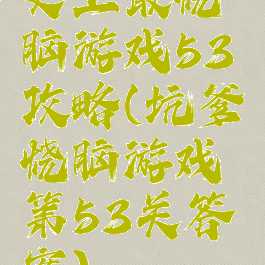 史上最烧
脑游戏53
攻略(坑爹
烧脑游戏
第53关答
案)